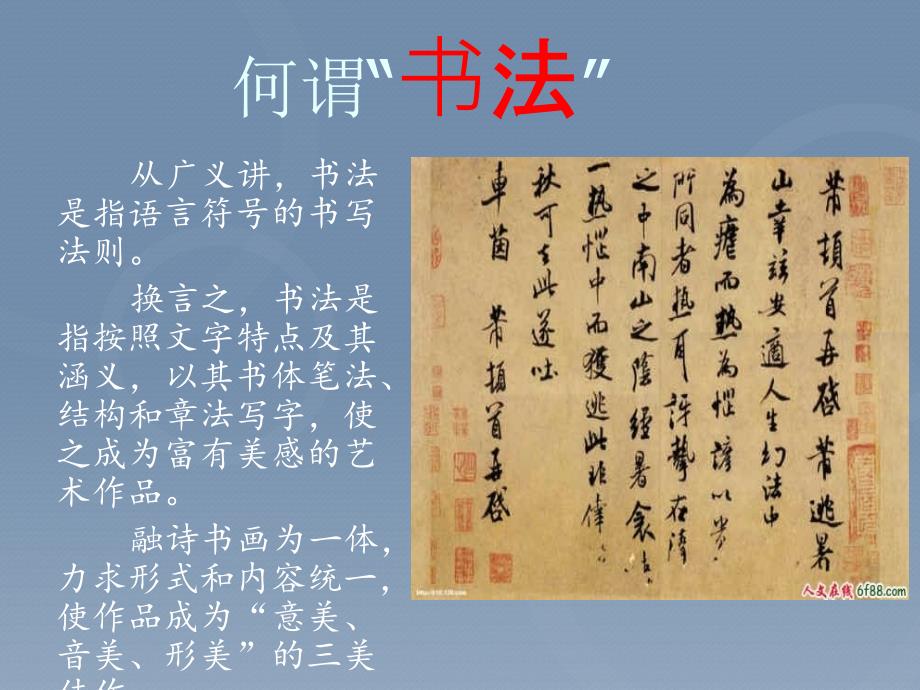 何谓“书法”
从广义讲，书法
是指语言符号的书写
法则。
换言之，书法是
指按照文字特点及其
涵义，以其书体笔法、
结构和章法写字，使
之成为富有美感的艺
术作品。
融诗书画为一体，
力求形式和内容统一，
使作品成为“意美、
音美、形美”的三美
芾頓首再啓芾逃暑
山幸兹安適人生幻法中
為瘧而熱為惱諺以貴
所同者熱耳訝挈在清
之中南山之陰經暑衾
一熱惱中而獲逃此非幸
秋可去此遂吐
車茵 芾頓首再啓
人文在线 6f88.com